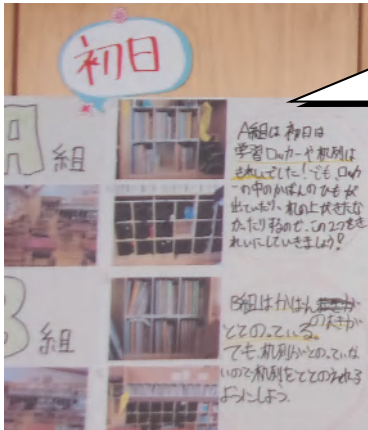 初日
A組
A組は初日は
学習ロッカーや机列は
きれいでした!でも、ロッカ
ーの中のかばんのひもが
出ていたり、机の上がきたな
かったりするので、この2つをき
れいにしていきましょう!
B組
B組はかばん
のむきが
ととのっている。
でも、机列がととのっていな
いので机列をととのえれる
ようにしよう。